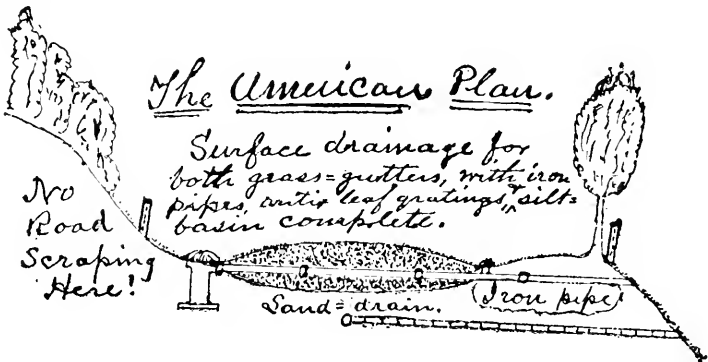 The American Plan.
Surface drainage for
both grass=gutters, with iron
pipes, anti leaf gratings, & silt=
basin complete.
No
Road
Scraping
Here!
Sand=drain.
(Iron pipe)